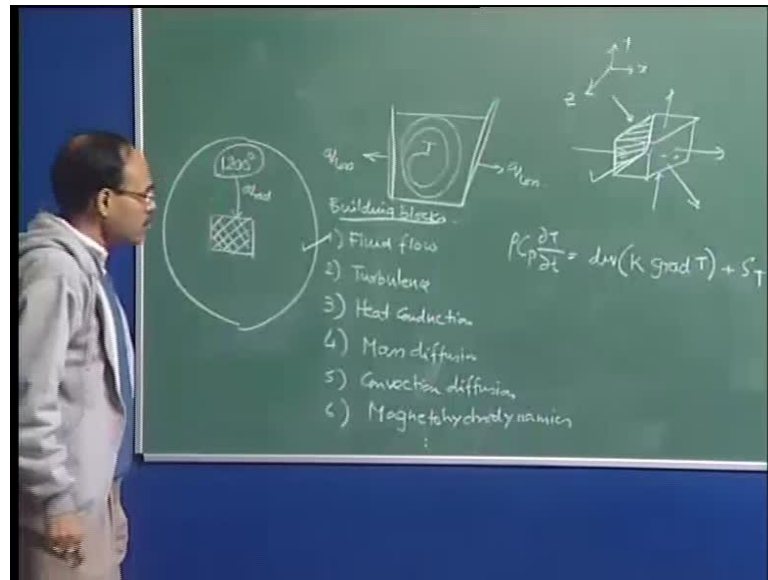 1200°
T
Building blocks
1) Fluid flow
2) Turbulence
3) Heat Conduction
4) Mass diffusion
5) Convection diffusion
6) Magnetohydrodynamics
ρCp ∂T/∂t = div(K grad T) + S_T
Y
x
z